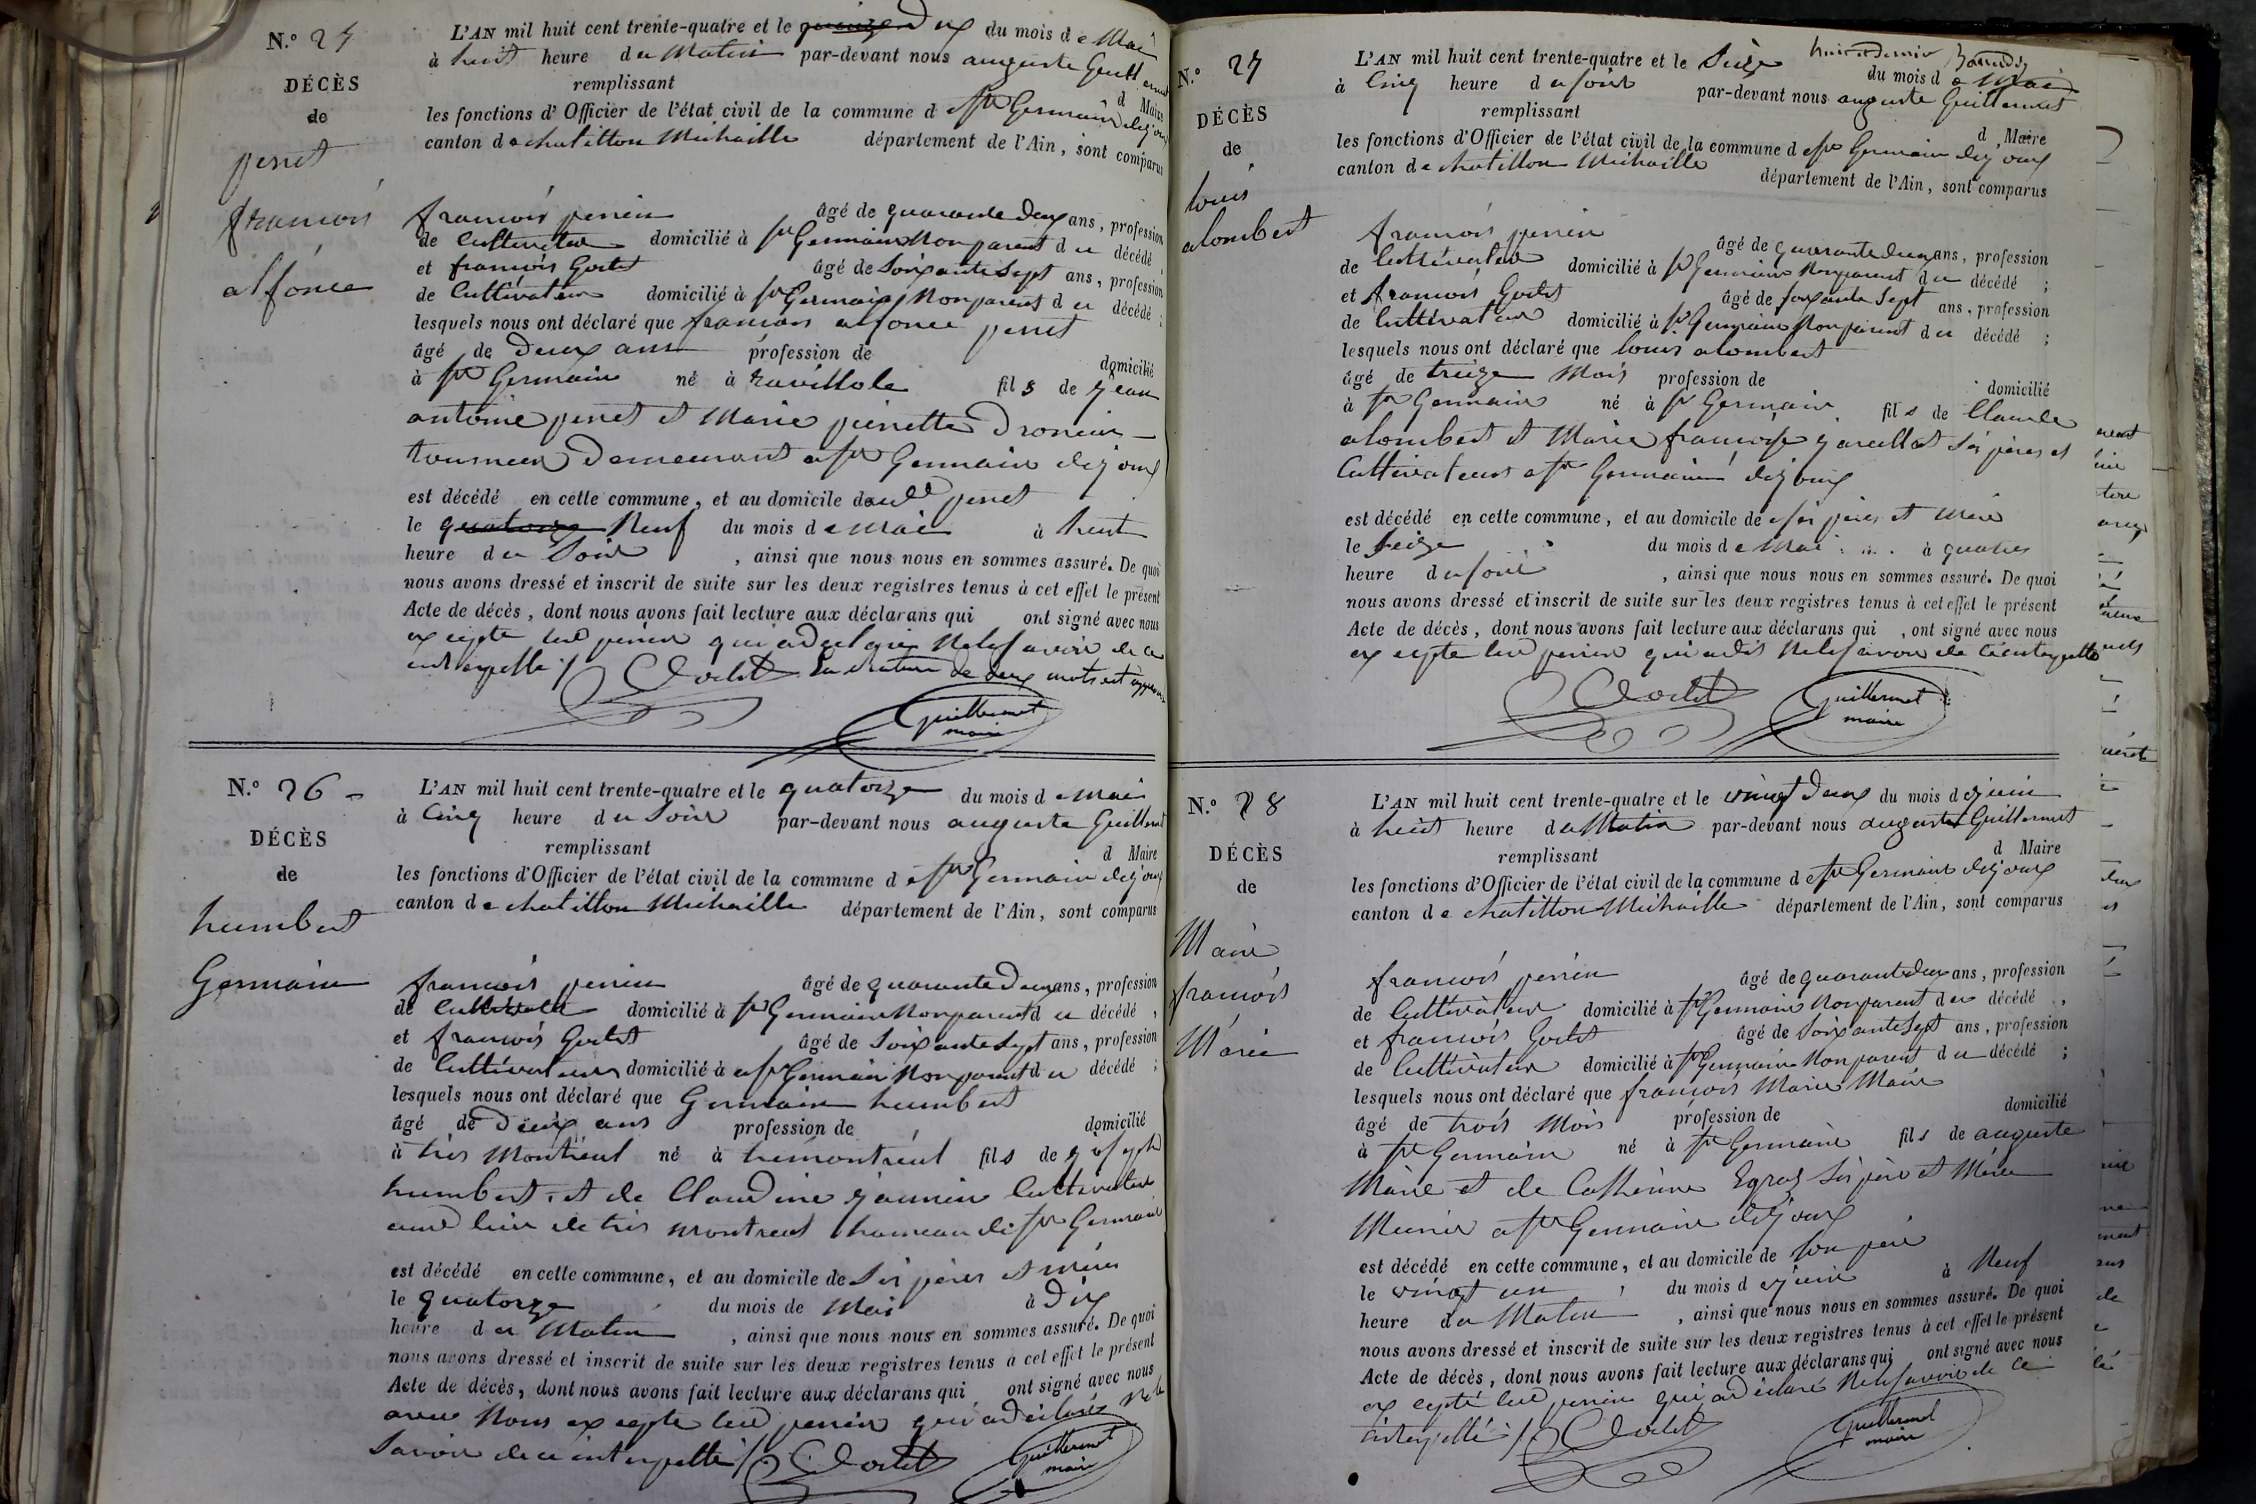 N.º 25
DÉCÈS
de
perret
francois
alfonce
L'AN mil huit cent trente-quatre et le quinze Dix du mois de Mai
à huit heure du Matin par-devant nous auguste Guillermet
remplissant d Maire
les fonctions d'Officier de l'état civil de la commune de st Germain dejoux
canton de chatillon Michaille département de l'Ain, sont comparus
francois perrin âgé de quarante Deux ans, profession
de Cultivateur domicilié à st Germain Non parent du décédé
et francois Godet âgé de Soixante Sept ans, profession
de Cultivateur domicilié à st Germain Non parent du décédé ;
lesquels nous ont déclaré que francois alfonce perret
âgé de Deux ans profession de domicilié
à st Germain né à ravillole fils de jean
antoine perret et Marie pierrette
tourneur Demeurant a st Germain dejoux
est décédé en cette commune, et au domicile dudt perret
le quatorze Neuf du mois de Mai à huit
heure du Soir , ainsi que nous nous en sommes assuré. De quoi
nous avons dressé et inscrit de suite sur les deux registres tenus à cet effet le présent
Acte de décès, dont nous avons fait lecture aux déclarans qui ont signé avec nous
excepte led perrin qui a declaré Nele savoir de ce
interpellé La rature de deux mots est
Godet
Guillermet
maire
N.º 26
DÉCÈS
de
humbert
Germain
L'AN mil huit cent trente-quatre et le quatorze du mois de Mai
à Cinq heure du Soir par-devant nous auguste Guillermet
remplissant d Maire
les fonctions d'Officier de l'état civil de la commune de st Germain dejoux
canton de chatillon Michaille département de l'Ain, sont comparus
francois perrin âgé de quarante Deux ans, profession
de domicilié à st Germain Non parent du décédé ,
et francois Godet âgé de Soixante Sept ans, profession
de Cultivateur domicilié à a st Germain Non parent du décédé ;
lesquels nous ont déclaré que Germain humbert
âgé de Deux ans profession de domicilié
à trés Montréal né à trémontréal fils de
humbert, et de Claudine Cultivateur
aud lieu de trés Montreal hameau de st Germain
est décédé en cette commune, et au domicile de Ses pères et mères
le quatorze du mois de Mai à Dix
heure du Matin , ainsi que nous nous en sommes assuré. De quoi
nous avons dressé et inscrit de suite sur les deux registres tenus à cet effet le présent
Acte de décès, dont nous avons fait lecture aux déclarans qui ont signé avec nous
avec Nous excepte led perrin qui a déclaré Nele
Savoir de ce interpellé
Godet
Guillermet
maire
N.º 27
DÉCÈS
de
louis
alombert
L'AN mil huit cent trente-quatre et le Seize du mois de Mai
à Cinq heure du soir par-devant nous auguste Guillermet
remplissant d Maire
les fonctions d'Officier de l'état civil de la commune de st Germain dejoux
canton de chatillon Michaille département de l'Ain, sont comparus
francois perrin âgé de quarante deux ans, profession
de Cultivateur domicilié à st Germain Non parent du décédé ;
et francois Godet âgé de soixante Sept ans, profession
de Cultivateur domicilié à st Germain Non parent du décédé ;
lesquels nous ont déclaré que louis alombert
âgé de treize Mois profession de domicilié
à st Germain né à st Germain fils de Claude
alombert et Marie francoise Ses pères et
Cultivateurs a st Germain dejoux
est décédé en cette commune, et au domicile de Ses pères et Mère
le Seize du mois de Mai à quatres
heure du soir , ainsi que nous nous en sommes assuré. De quoi
nous avons dressé et inscrit de suite sur les deux registres tenus à cet effet le présent
Acte de décès, dont nous avons fait lecture aux déclarans qui , ont signé avec nous
excepte led perrin qui a dit Nele savoir de ce interpellé
Godet
Guillermet
maire
N.º 28
DÉCÈS
de
Maire
francois
Marie
L'AN mil huit cent trente-quatre et le vingt Deux du mois de juin
à huit heure du Matin par-devant nous auguste Guillermet
remplissant d Maire
les fonctions d'Officier de l'état civil de la commune de st Germain dejoux
canton de chatillon Michaille département de l'Ain, sont comparus
francois perrin âgé de quarante deux ans, profession
de Cultivateur domicilié à st Germain Non parent du décédé ,
et francois Godet âgé de Soixante Sept ans, profession
de Cultivateur domicilié à st Germain Non parent du décédé ;
lesquels nous ont déclaré que francois Marie Maire
âgé de trois Mois profession de domicilié
à st Germain né à st Germain fils de auguste
Maire et de Catherine Egraz Ses père et Mère
Meunier a st Germain dejoux
est décédé en cette commune, et au domicile de Son père
le vingt un du mois de juin à Neuf
heure du Matin , ainsi que nous nous en sommes assuré. De quoi
nous avons dressé et inscrit de suite sur les deux registres tenus à cet effet le présent
Acte de décès, dont nous avons fait lecture aux déclarans qui ont signé avec nous
excepté led perrin qui a déclaré Nele savoir de ce
interpellé
Godet
Guillermet
maire